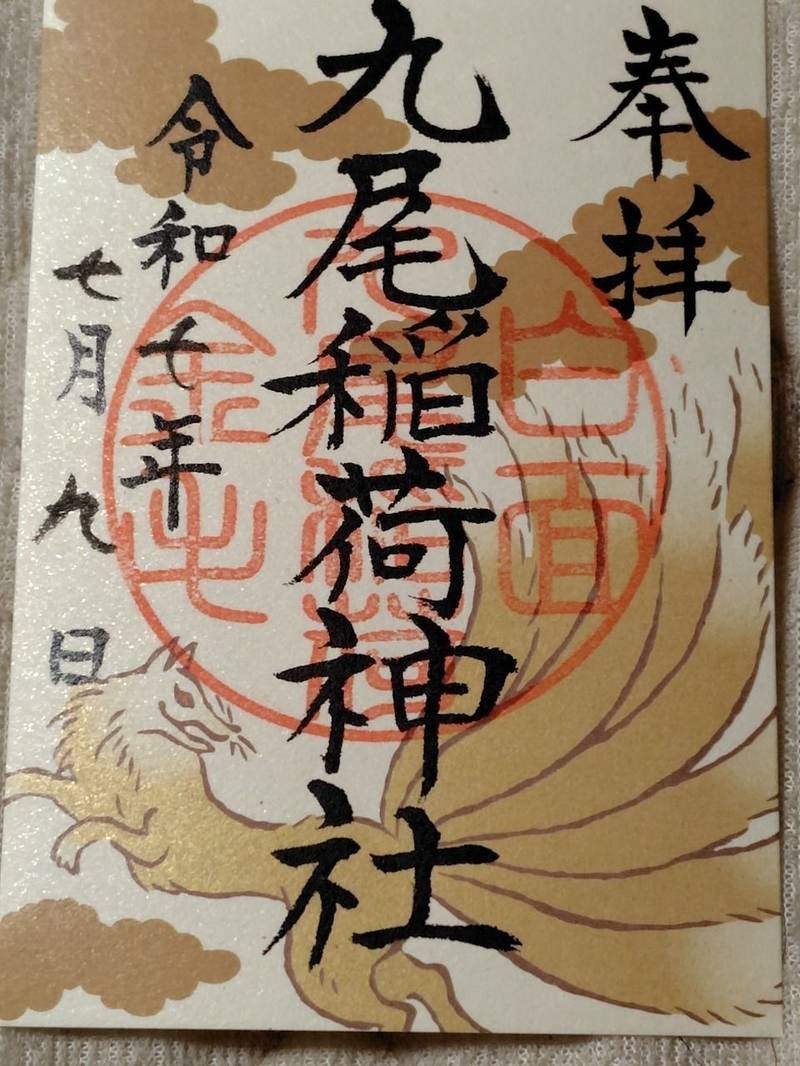 奉拝
九尾稲荷神社
令和七年
七月九日
白面
金毛